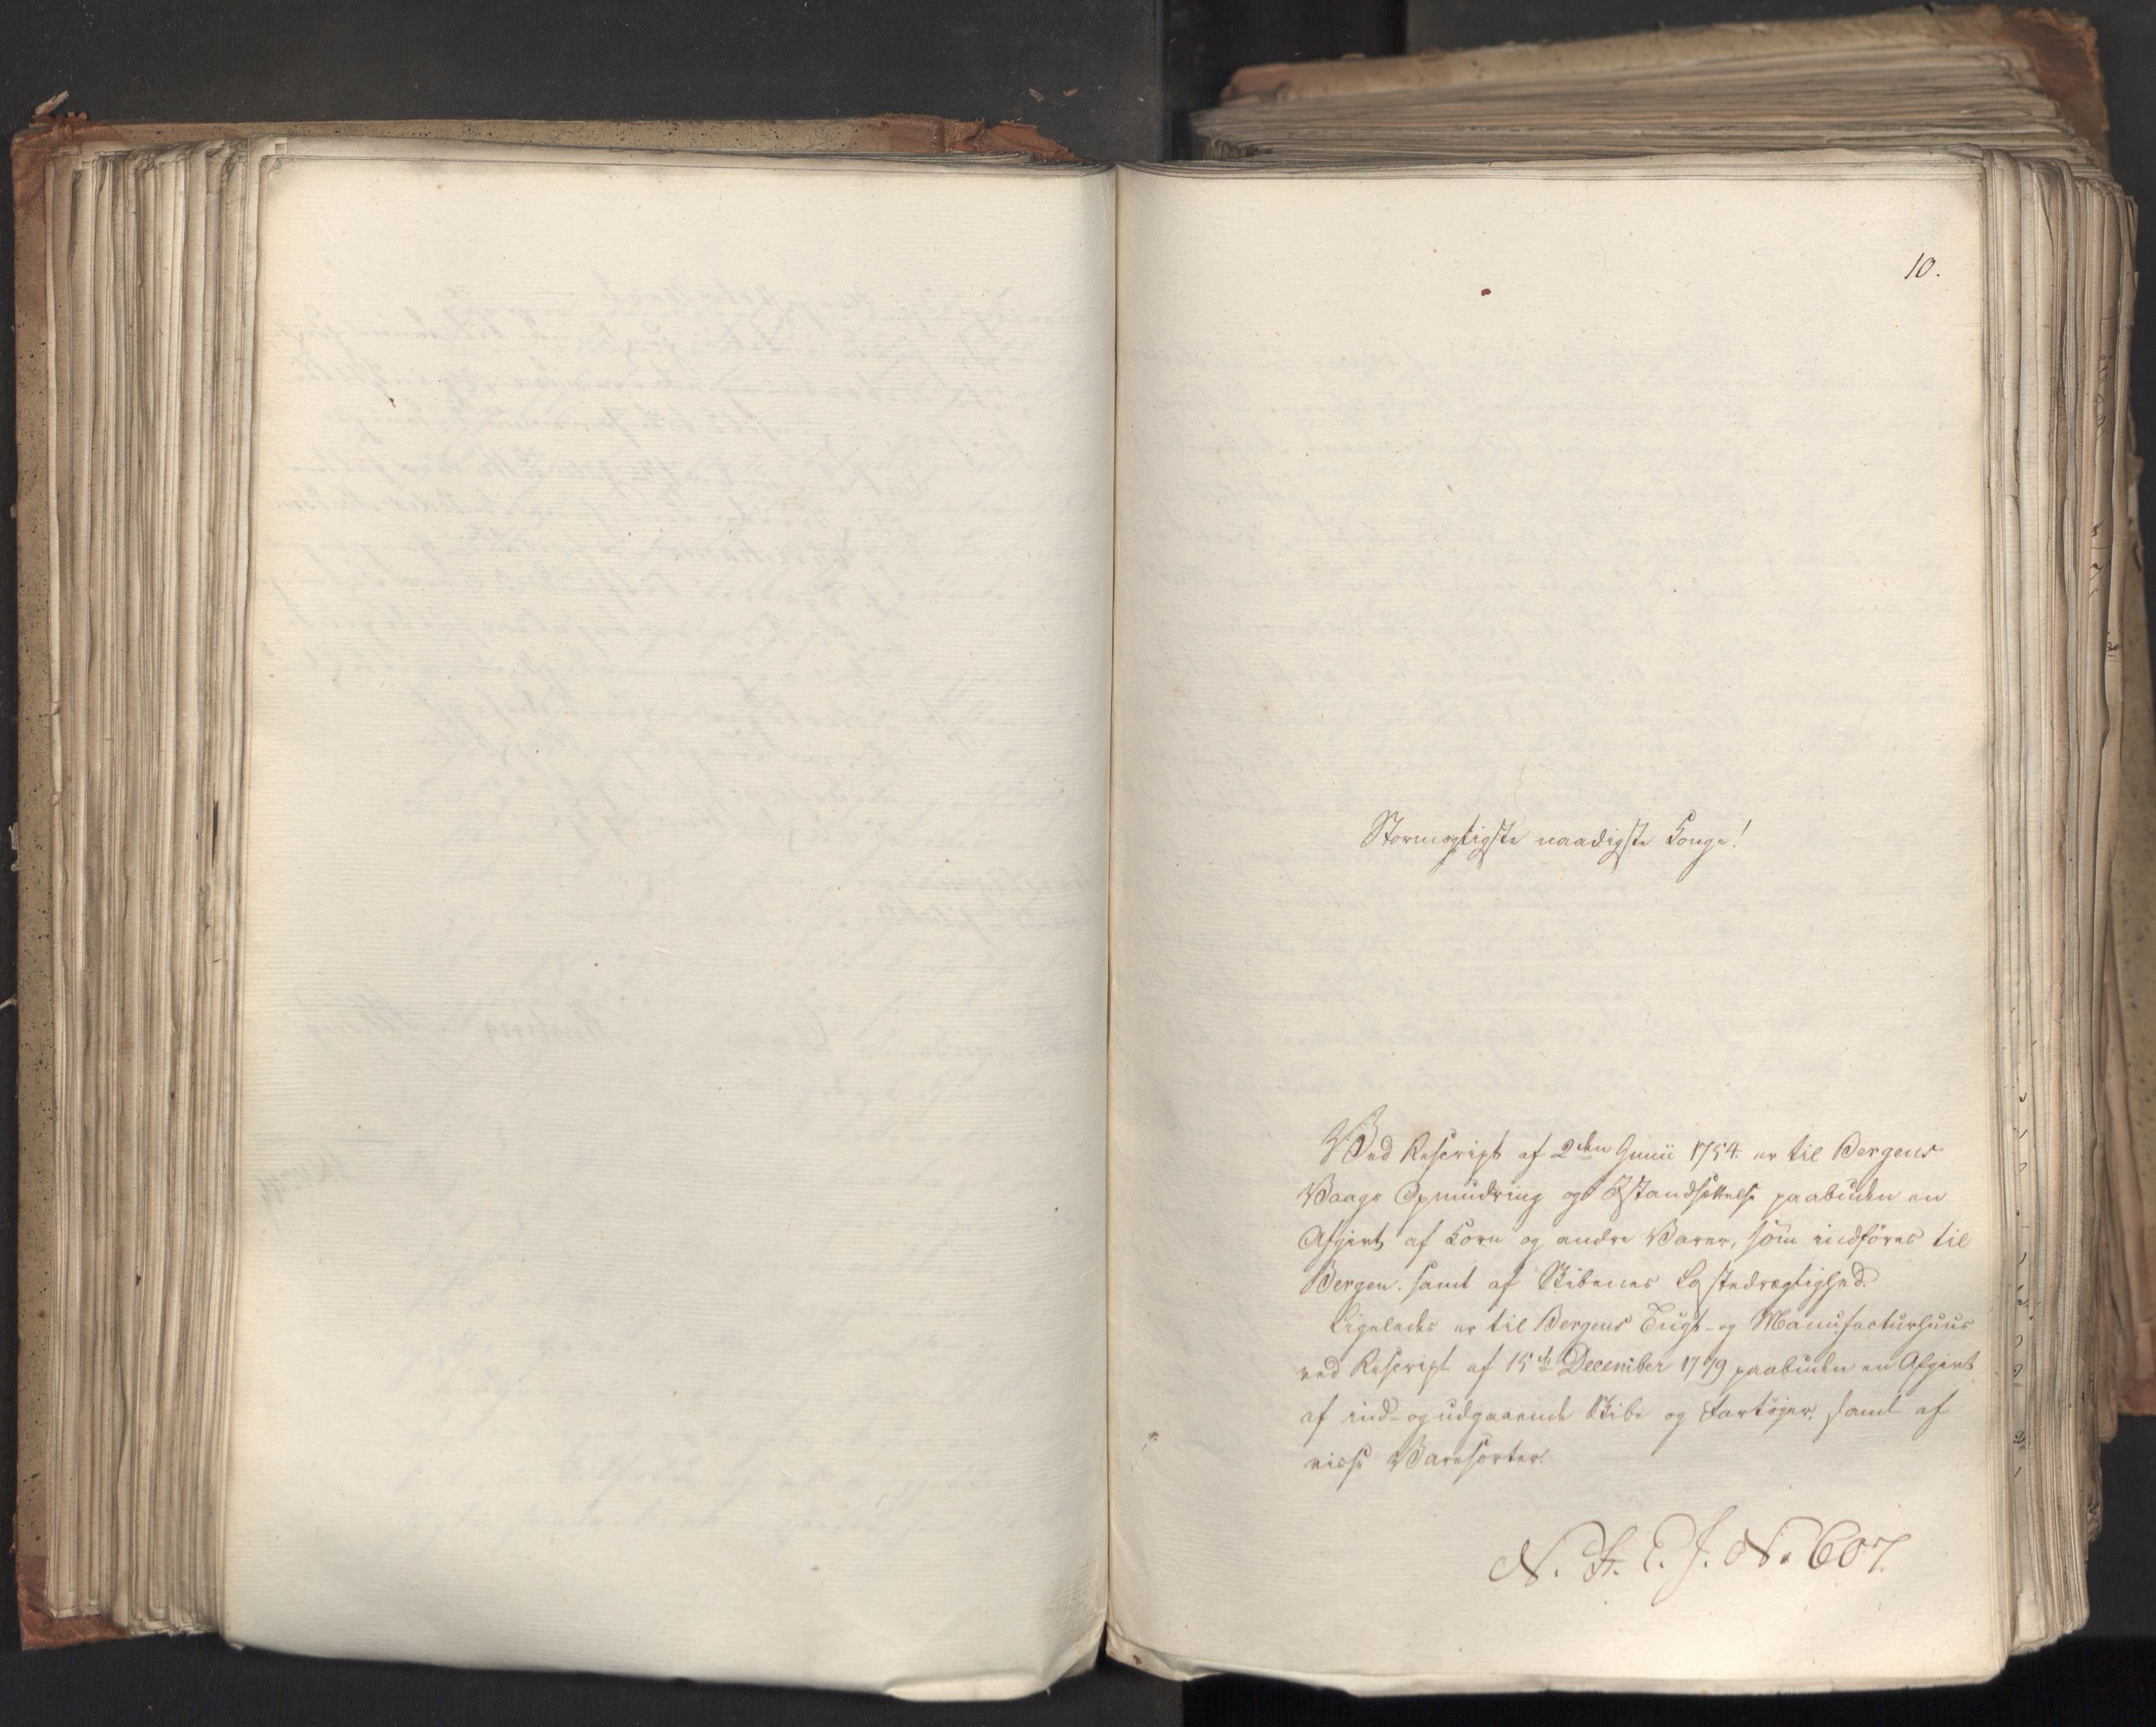 10.
Stormægtigste naadigste Konge!
Ved Rescript af 2den Junii 1754. er til Bergens
Vaags Opmudring og Istandsættelse paabuden en
Afgivt af Korn og andre Varer, som indföres til
Bergen. samt af Skibenes Læstedrægtighed.
Ligeledes er til Bergens Tugt- og Manufacturhuus
ved Rescript af 15de December 1779 paabuden en Afgivt
af ind- og udgaaende Skibe og Fartöjer, samt af
visse Varesorter.
N. F. C. J. No 607